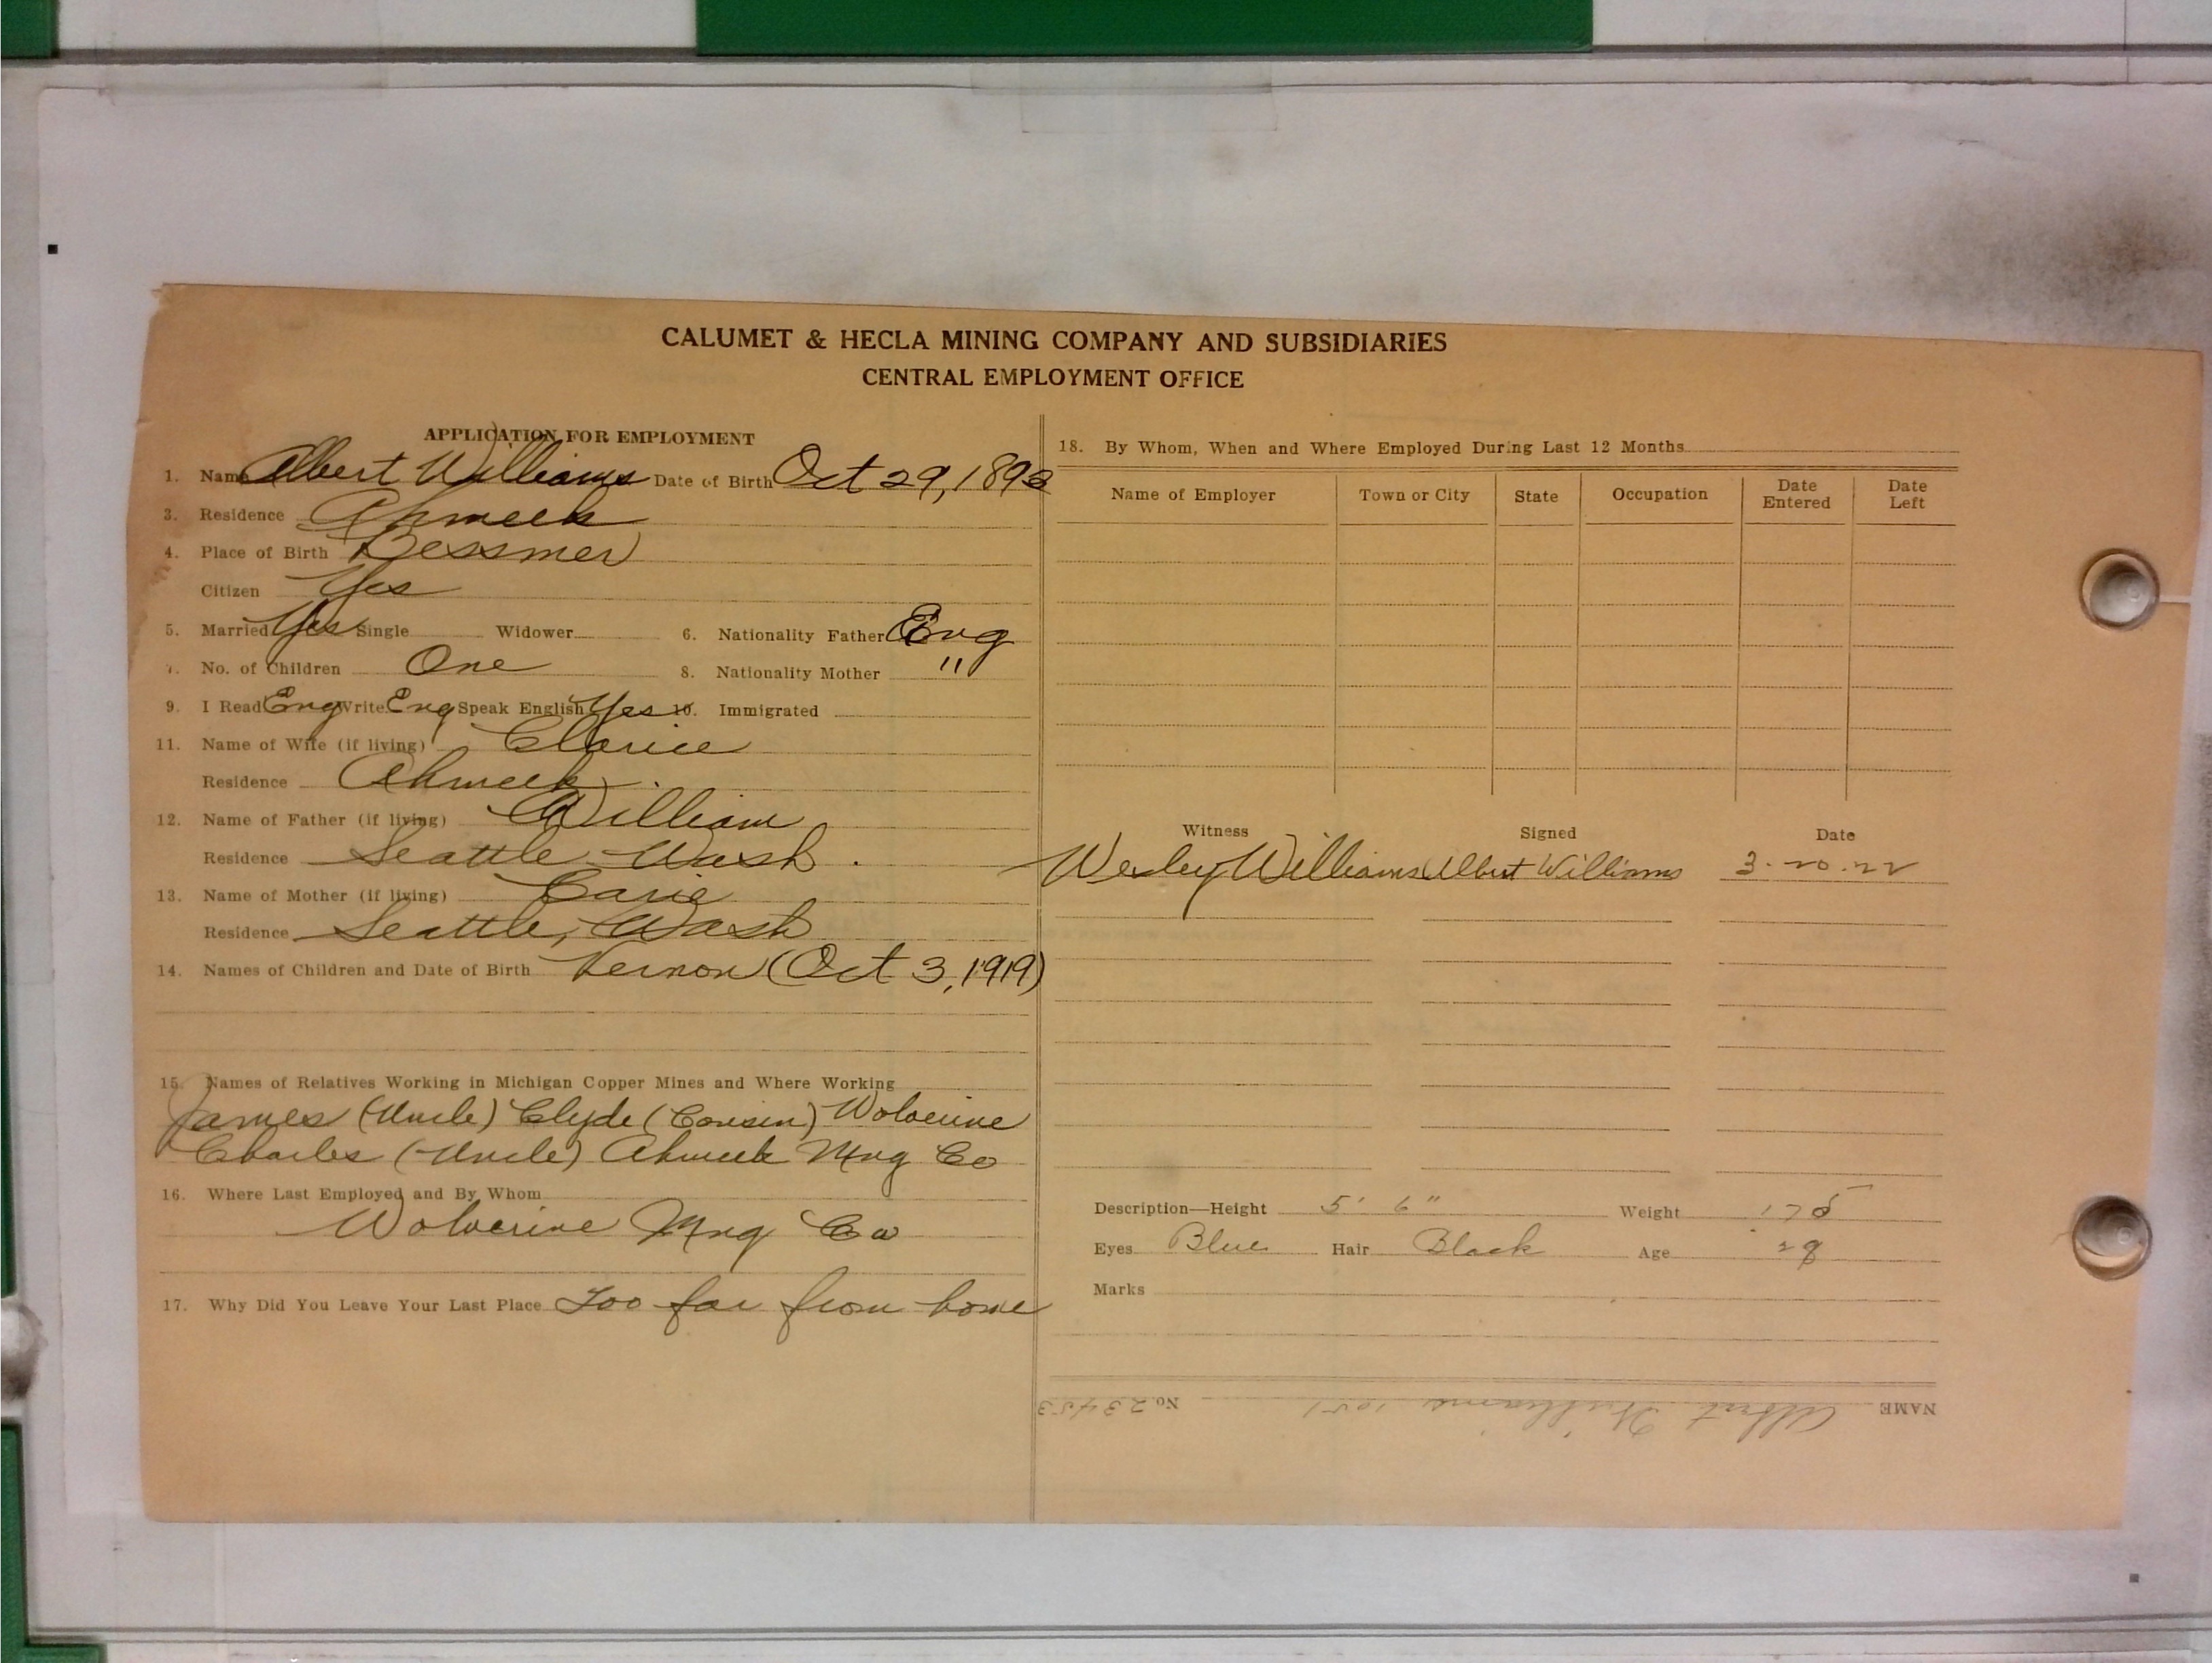 CALUMET & HECLA MINING COMPANY AND SUBSIDIARIES
CENTRAL EMPLOYMENT OFFICE
APPLICATION FOR EMPLOYMENT
1. Name Albert Williams Date of Birth Oct 29, 1893
3. Residence Ahmeek
4. Place of Birth Bessmer
Citizen Yes
5. Married Yes Single Widower 6. Nationality Father Eng
7. No. of Children One 8. Nationality Mother "
9. I Read Eng Write Eng Speak English Yes 10. Immigrated
11. Name of Wife (if living) Clarice
Residence Ahmeek
12. Name of Father (if living) William
Residence Seattle Wash.
13. Name of Mother (if living) Carie
Residence Seattle, Wash
14. Names of Children and Date of Birth Vernon (Oct 3, 1919)
15. Names of Relatives Working in Michigan Copper Mines and Where Working
James (Uncle) Clyde (Cousin) Wolverine
Charles (Uncle) Ahmeek Mng Co
16. Where Last Employed and By Whom
Wolverine Mng Co
17. Why Did You Leave Your Last Place Too far from home
18. By Whom, When and Where Employed During Last 12 Months
Name of Employer Town or City State Occupation Date Entered Date Left
Witness Signed Date
Wesley Williams Albert Williams 3-20-22
Description—Height 5' 6" Weight 175
Eyes Blue Hair Black Age 28
Marks
NAME Albert Williams 1051 No. 23453